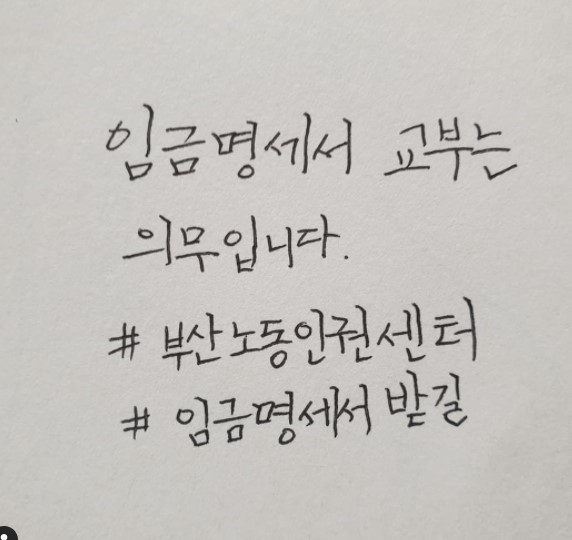 임금명세서 교부는
의무입니다.
# 부산노동인권센터
# 임금명세서 받길